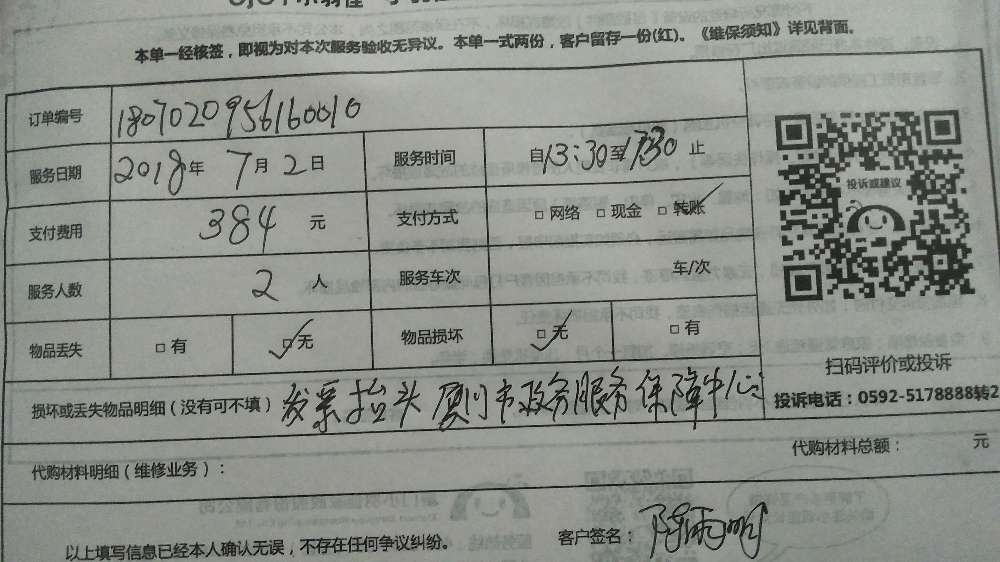 本单一经核签，即视为对本次服务验收无异议。本单一式两份，客户留存一份(红)。《维保须知》详见背面。
订单编号 180702095616010
服务日期 2018年7月2日 服务时间 自13:30至17:30止
支付费用 384 元 支付方式 □网络 □现金 □转账
服务人数 2 人 服务车次 车/次
物品丢失 □有 □无 物品损坏 □无 □有
投诉或建议
扫码评价或投诉
投诉电话：0592-5178888转2
损坏或丢失物品明细（没有可不填） 发票抬头 厦门市政务服务保障中心
代购材料明细（维修业务）： 代购材料总额： 元
以上填写信息已经本人确认无误，不存在任何争议纠纷。 客户签名：